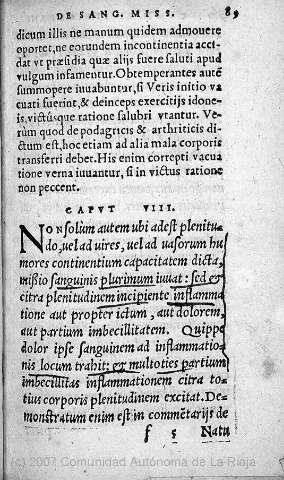 DE SANG. MISS. 89
dicum illis ne manum quidem admouere
oportet, ne eorundem incontinentia acci
dat vt præsidia quæ alijs fuere saluti apud
vulgum infamentur. Obtemperantes autē
summopere iuuabuntur, si Veris initio va
cuati fuerint, & deinceps exercitijs idone-
is, victúsque ratione salubri vtantur. Ve-
rùm quod de podagricis & arthriticis di-
ctum est, hoc etiam ad alia mala corporis
transferri debet. His enim correpti vacua
tione verna iuuantur, si in victus ratione
non peccent.
CAPVT VIII.
NOn solium autem ubi adest plenitu-
do, uel ad uires, uel ad uasorum hu
mores continentium capacitatem dicta,
mißio sanguinis plurimum iuuat: sed et
citra plenitudinem incipiente inflamma
tione aut propter ictum, aut dolorem,
aut partium imbecillitatem. Quippe
dolor ipse sanguinem ad inflammatio-
nis locum trahit: et multoties partium
imbecillitas inflammationem citra to-
tius corporis plenitudinem excitat. De-
monstratum enim est in commētarijs de
f 5 Natu
(c) 2007 Comunidad Autónoma de La Rioja